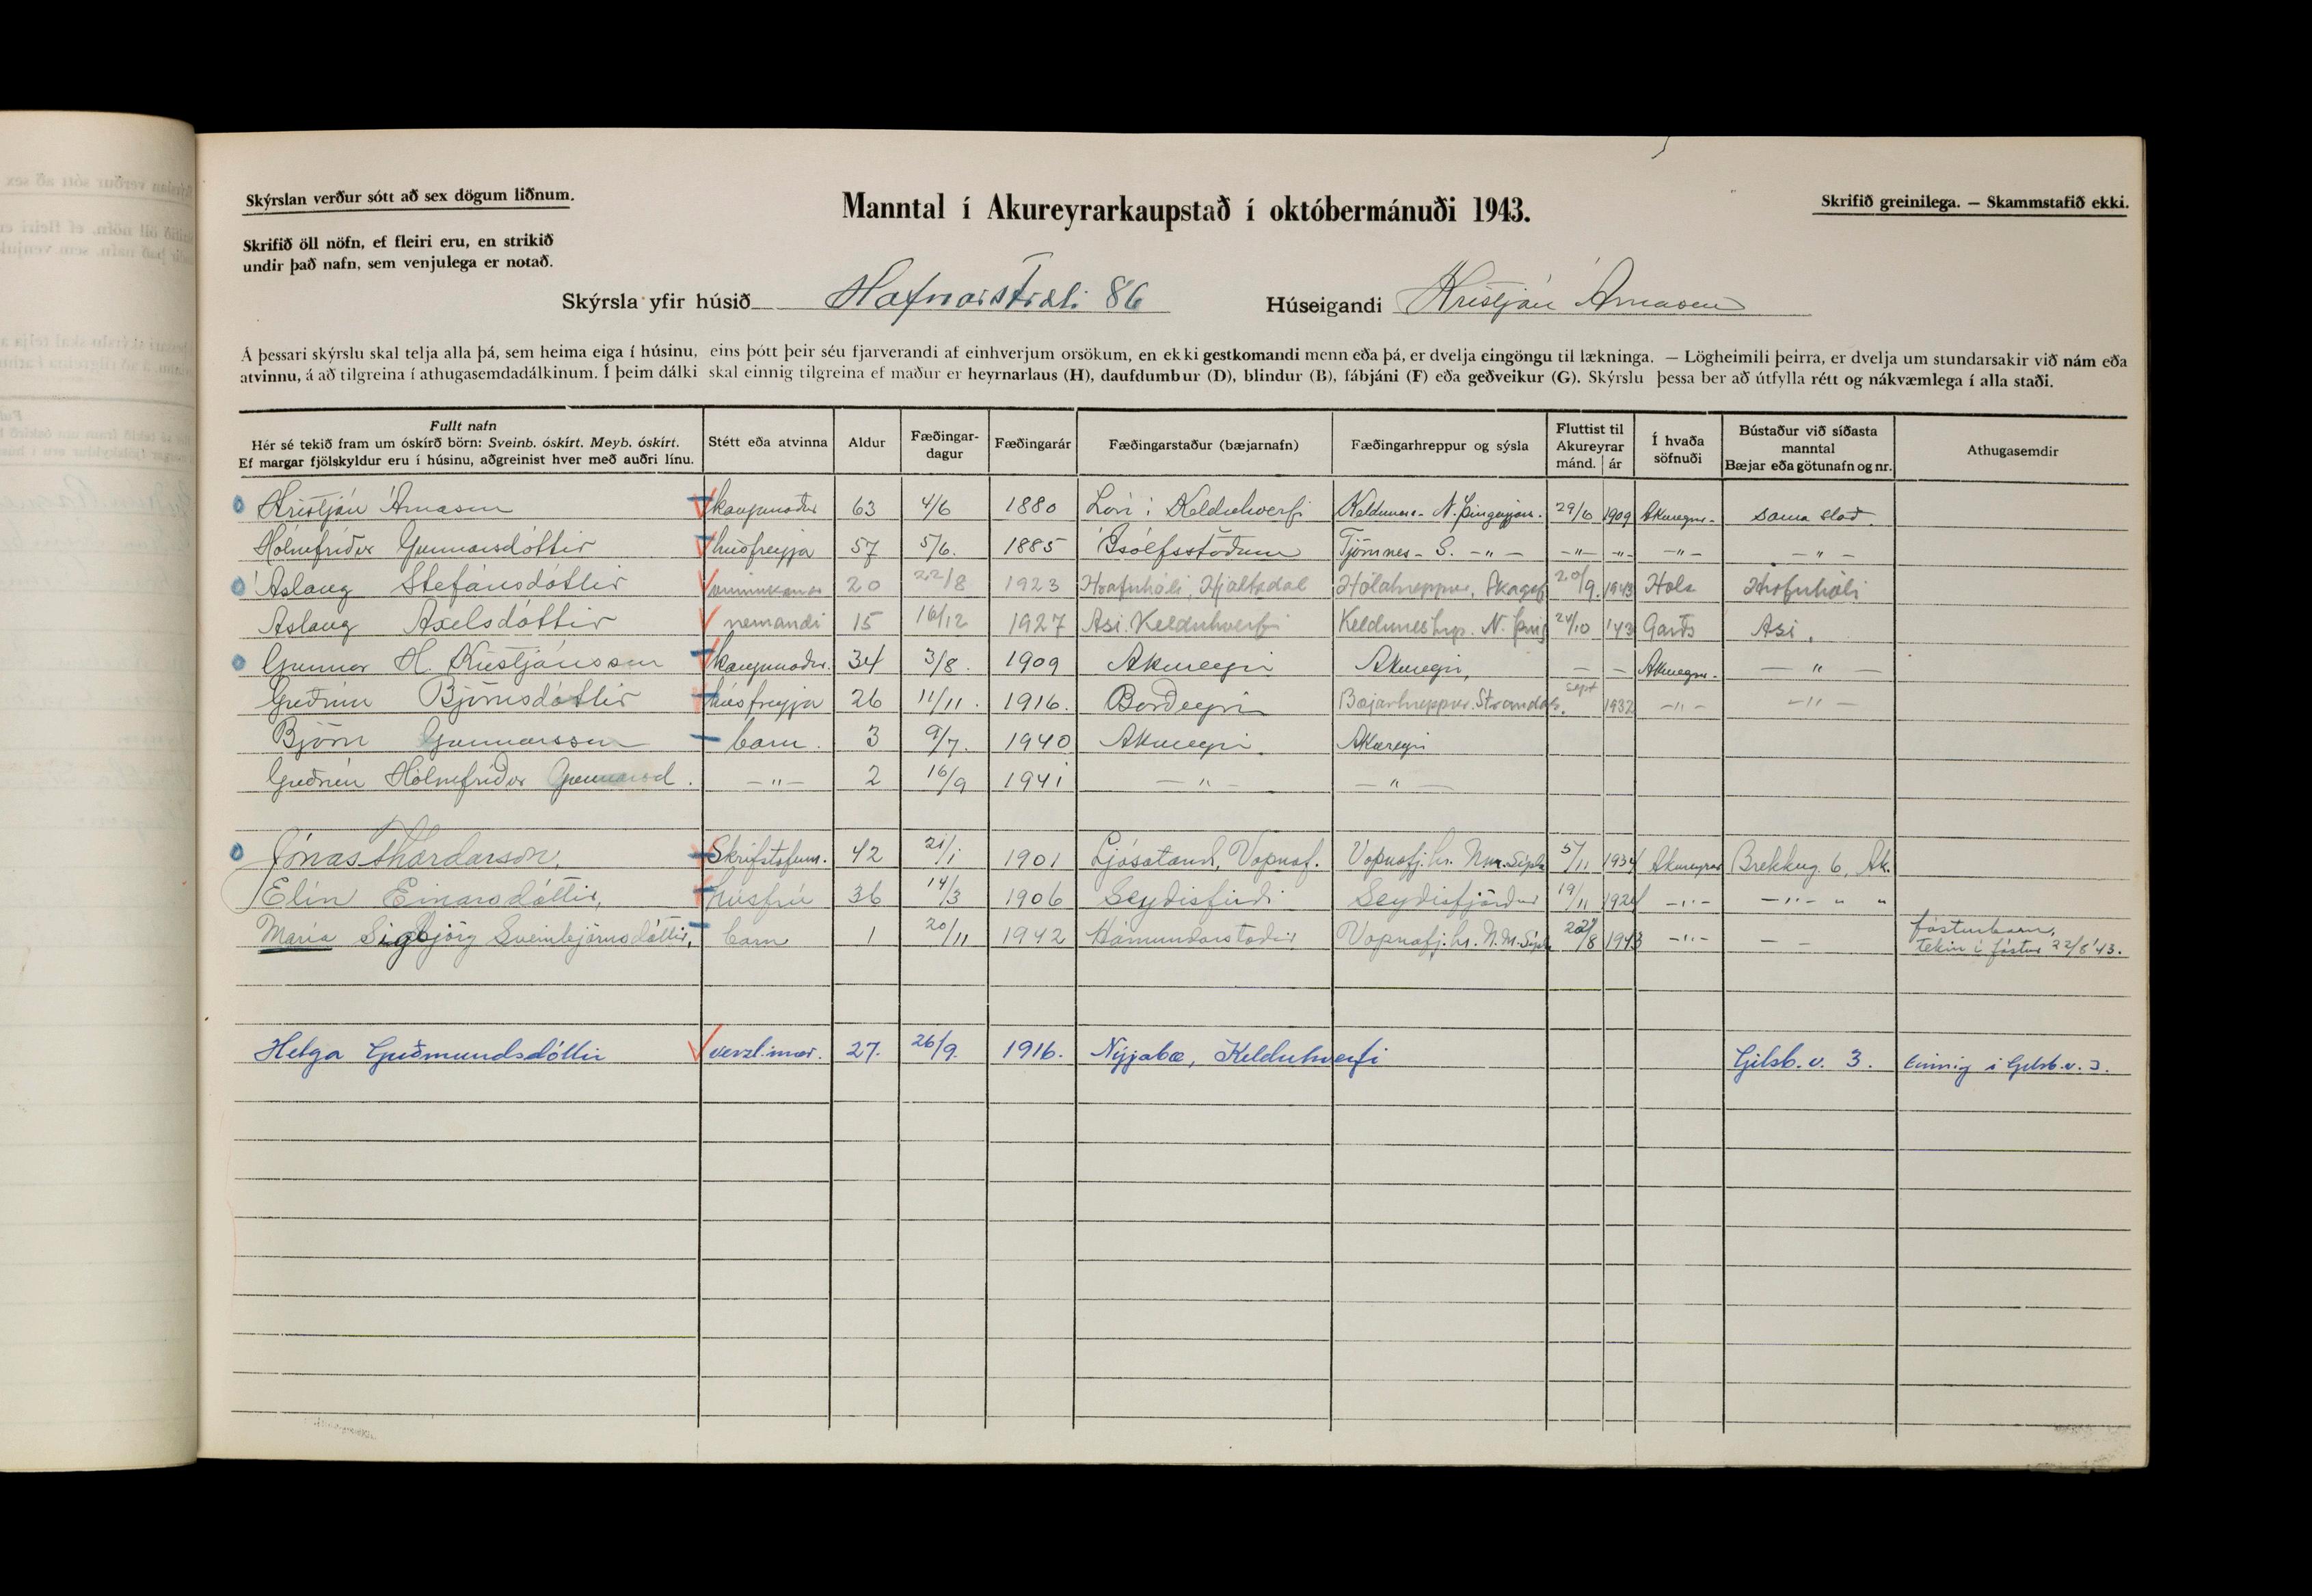 Skýrslan verður sótt að sex dögum liðnum.
Manntal í Akureyrarkaupstað í októbermánuði 1943.
Skrifið greinilega. — Skammstafið ekki.
Skrifið öll nöfn, ef fleiri eru, en strikið
undir það nafn, sem venjulega er notað.
Skýrsla yfir húsið Hafnarstræti 86 Húseigandi Kristján Árnason
Á þessari skýrslu skal telja alla þá, sem heima eiga í húsinu, eins þótt þeir séu fjarverandi af einhverjum orsökum, en ekki gestkomandi menn eða þá, er dvelja eingöngu til lækninga. — Lögheimili þeirra, er dvelja um stundarsakir við nám eða
atvinnu, á að tilgreina í athugasemdadálkinum. Í þeim dálki skal einnig tilgreina ef maður er heyrnarlaus (H), daufdumbur (D), blindur (B), fábjáni (F) eða geðveikur (G). Skýrslu þessa ber að útfylla rétt og nákvæmlega í alla staði.
Fullt nafn
Hér sé tekið fram um óskírð börn: Sveinb. óskírt. Meyb. óskírt.
Ef margar fjölskyldur eru í húsinu, aðgreinist hver með auðri línu.
Stétt eða atvinna
Aldur
Fæðingar-
dagur
Fæðingarár
Fæðingarstaður (bæjarnafn)
Fæðingarhreppur og sýsla
Fluttist til
Akureyrar
mánd. ár
Í hvaða
söfnuði
Bústaður við síðasta
manntal
Bæjar eða götunafn og nr.
Athugasemdir
Kristján Árnason kaupmaður 63 4/6 1880 Lóni í Kelduhverfi Keldunes- N. Þingeyjar. 29/6 1909 Akureyrar- sama stað.
Hólmfríður Gunnarsdóttir húsfreyja 57 5/6. 1885 Ísólfsstöðum Tjörnnes- S. -"- -"- -"- -"- -"-
Áslaug Stefánsdóttir vinnukona 20 22/8 1923 Hrafnhóli, Hjaltadal Hólahreppur, Skagaf. 20/9. 1943 Hóla Hrafnhóli
Aslaug Axelsdóttir nemandi 15 16/12 1927 Ási. Kelduhverfi Kelduneshrp. N. Þing 24/10 '43 Garðs Ási.
Gunnar H. Kristjánsson kaupmaður. 34 3/8. 1909 Akureyri Akureyri, — — Akureyrar. — " —
Guðrún Björnsdóttir húsfreyja 26 11/11. 1916. Borðeyri Bæjarhreppur. Strandas. sept 1932 -"- -"-
Björn Gunnarsson barn. 3 9/7. 1940 Akureyri. Akureyri
Guðrún Hólmfríður Gunnarsd. -"- 2 16/9 1941 — " — — " —
Jónas Thordarson, Skrifstofum. 42 21/1 1901 Ljósaland, Vopnaf. Vopnafj.hr. N.M.Sýslu 5/11 1934 Akureyrar Brekkug. 6, Ak.
Elín Einarsdóttir, húsfrú 36 14/3 1906 Seyðisfirði Seyðisfjörður 19/11 1924 -"- -"- " "
María Sigbjörg Sveinbjörnsdóttir, barn 1 20/11 1942 Hámundarstaðir Vopnafj.hr. N.M.Sýslu 22/8 1943 -"- — — fósturbarn,
tekin í fóstur 22/8 '43.
Helga Guðmundsdóttir verzl.mær. 27. 26/9. 1916. Nýjabæ, Kelduhverfi Gilsb.v. 3. Einnig í Gilsb.v. 3.